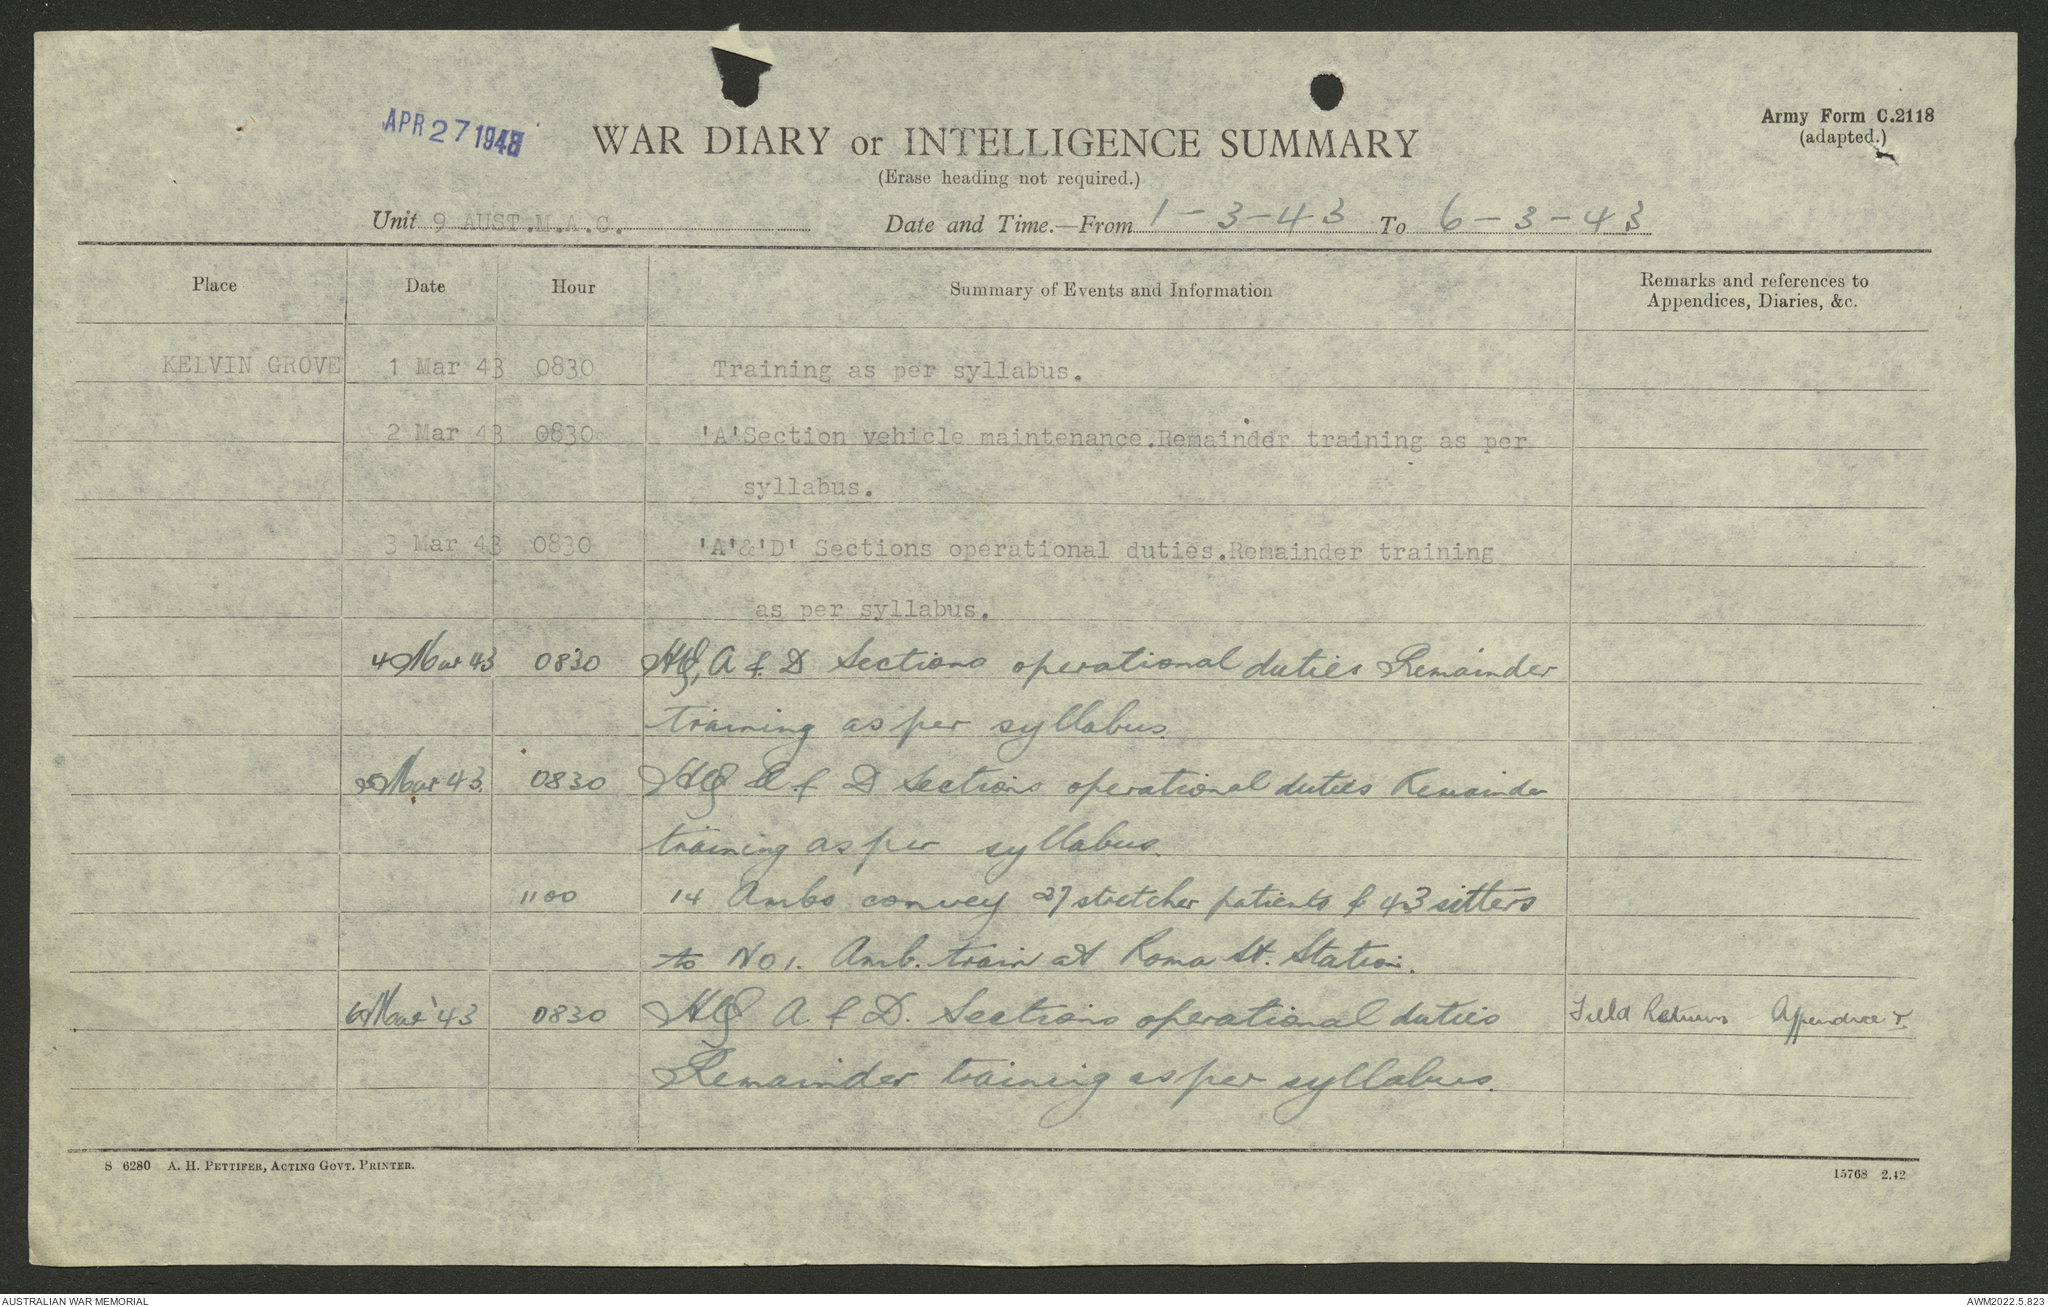 APR 27 1943
WAR DIARY or INTELLIGENCE SUMMARY
Army Form C.2118
(adapted.)
(Erase heading not required.)
Unit 9 AUST.M.A.C. Date and Time.—From 1-3-43 To 6-3-43
Place Date Hour Summary of Events and Information Remarks and references to
Appendices, Diaries, &c.
KELVIN GROVE 1 Mar 43 0830 Training as per syllabus.
2 Mar 43 0830 'A'Section vehicle maintenance.Remainder training as per
syllabus.
3 Mar 43 0830 'A'&'D' Sections operational duties.Remainder training
as per syllabus.
4 Mar 43 0830 HQ, A & D Sections operational duties Remainder
training as per syllabus.
5 Mar 43. 0830 HQ & D Sections operational duties Remainder
training as per syllabus.
1100 14 Ambs convey 27 stretcher patients & 43 sitters
to No 1. Amb. train at Roma St. Station.
6 Mar 43 0830 HQ A. & D. Sections operational duties Field Returns
Remainder training as per syllabus.
S 6280 A. H. PETTIFER, ACTING GOVT. PRINTER. 15768 2.42
AUSTRALIAN WAR MEMORIAL AWM2022.5.823